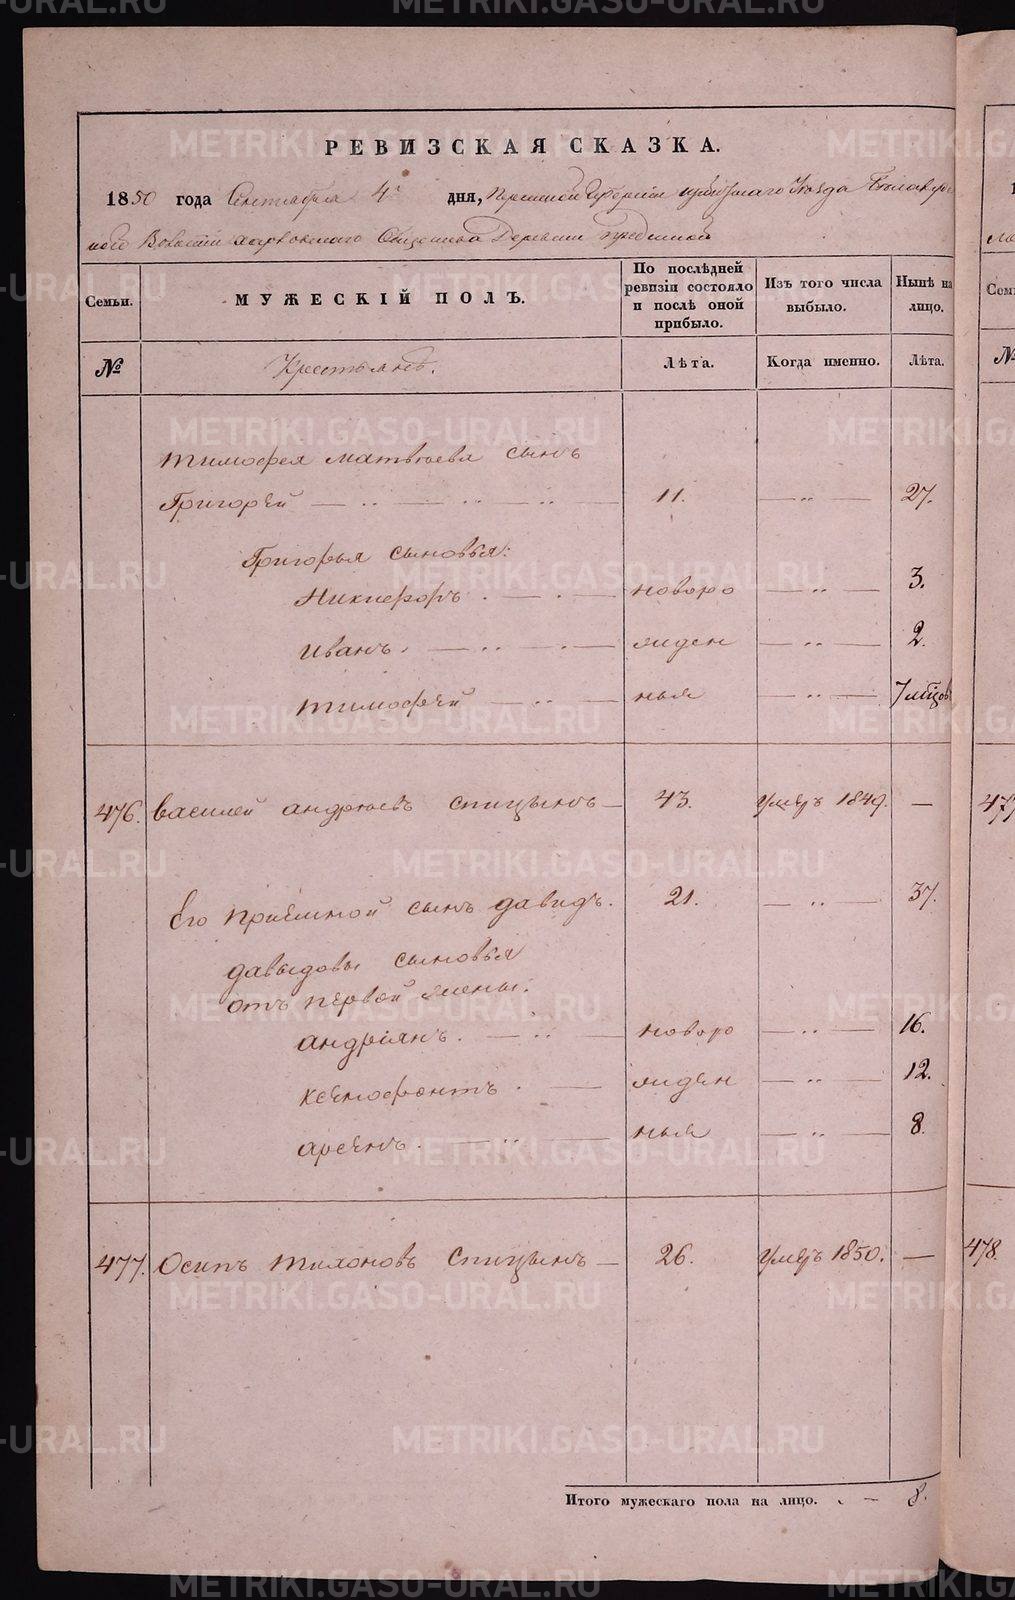 РЕВИЗСКАЯ СКАЗКА.
1850 года Сентября 4го дня, Пермской Губернии Ирбитскаго Уезда
Волости Общества Деревни
Семьи. МУЖЕСКІЙ ПОЛЪ. По послѣдней ревизіи состояло и послѣ оной прибыло. Изъ того числа выбыло. Нынѣ на лицо.
№ Крестьянѣ. Лѣта. Когда именно. Лѣта.
Тимофея Матвѣева сынъ
Григорѣй — 11. — „ — 27.
Григорья сыновья:
Никифоръ. — новоро — „ — 3.
Иванъ. — жиден — „ — 2.
Тимофѣй — ныя — „ — 7 мѣсяцов
476. Василей Андрѣевъ Спицынъ — 43. умѣръ 1849. —
Его приемной сынъ Давидъ. 21. — „ — 37.
Давыдовы сыновья
отъ первой жены:
Андріянъ. — новоро — „ — 16.
Ксенофонтъ. — жиден — „ — 12.
Арсенъ. — ныя — „ — 8.
477. Осипъ Тихоновъ Спицынъ — 26. умѣръ 1850. —
Итого мужескаго пола на лицо. — 8.
1
Сем
№
477
478.
METRIKI.GASO-URAL.RU